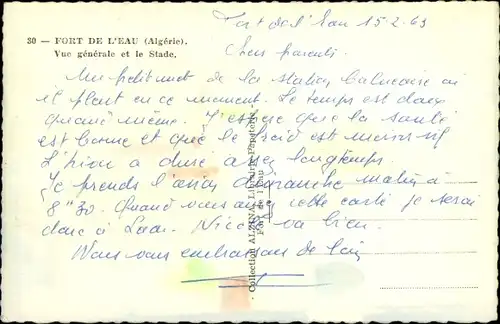 Fort de l'Eau 15-2-63
30 — FORT DE L'EAU (Algérie).
Vue générale et le Stade.
Chers parents.
Un petit mot de la station balnéaire où
il pleut en ce moment. Le temps est doux
quand même. J'espère que la santé
est bonne et que le froid est moins vif
L'hiver a duré assez longtemps.
Je prends l'avion dimanche matin à
8"30. Quand vous aurez cette carte je serai
donc à Nicole va bien.
Nous vous embrassons de loin
- Collection ALZINA, Librairie-Papeterie -
Fort de l'Eau